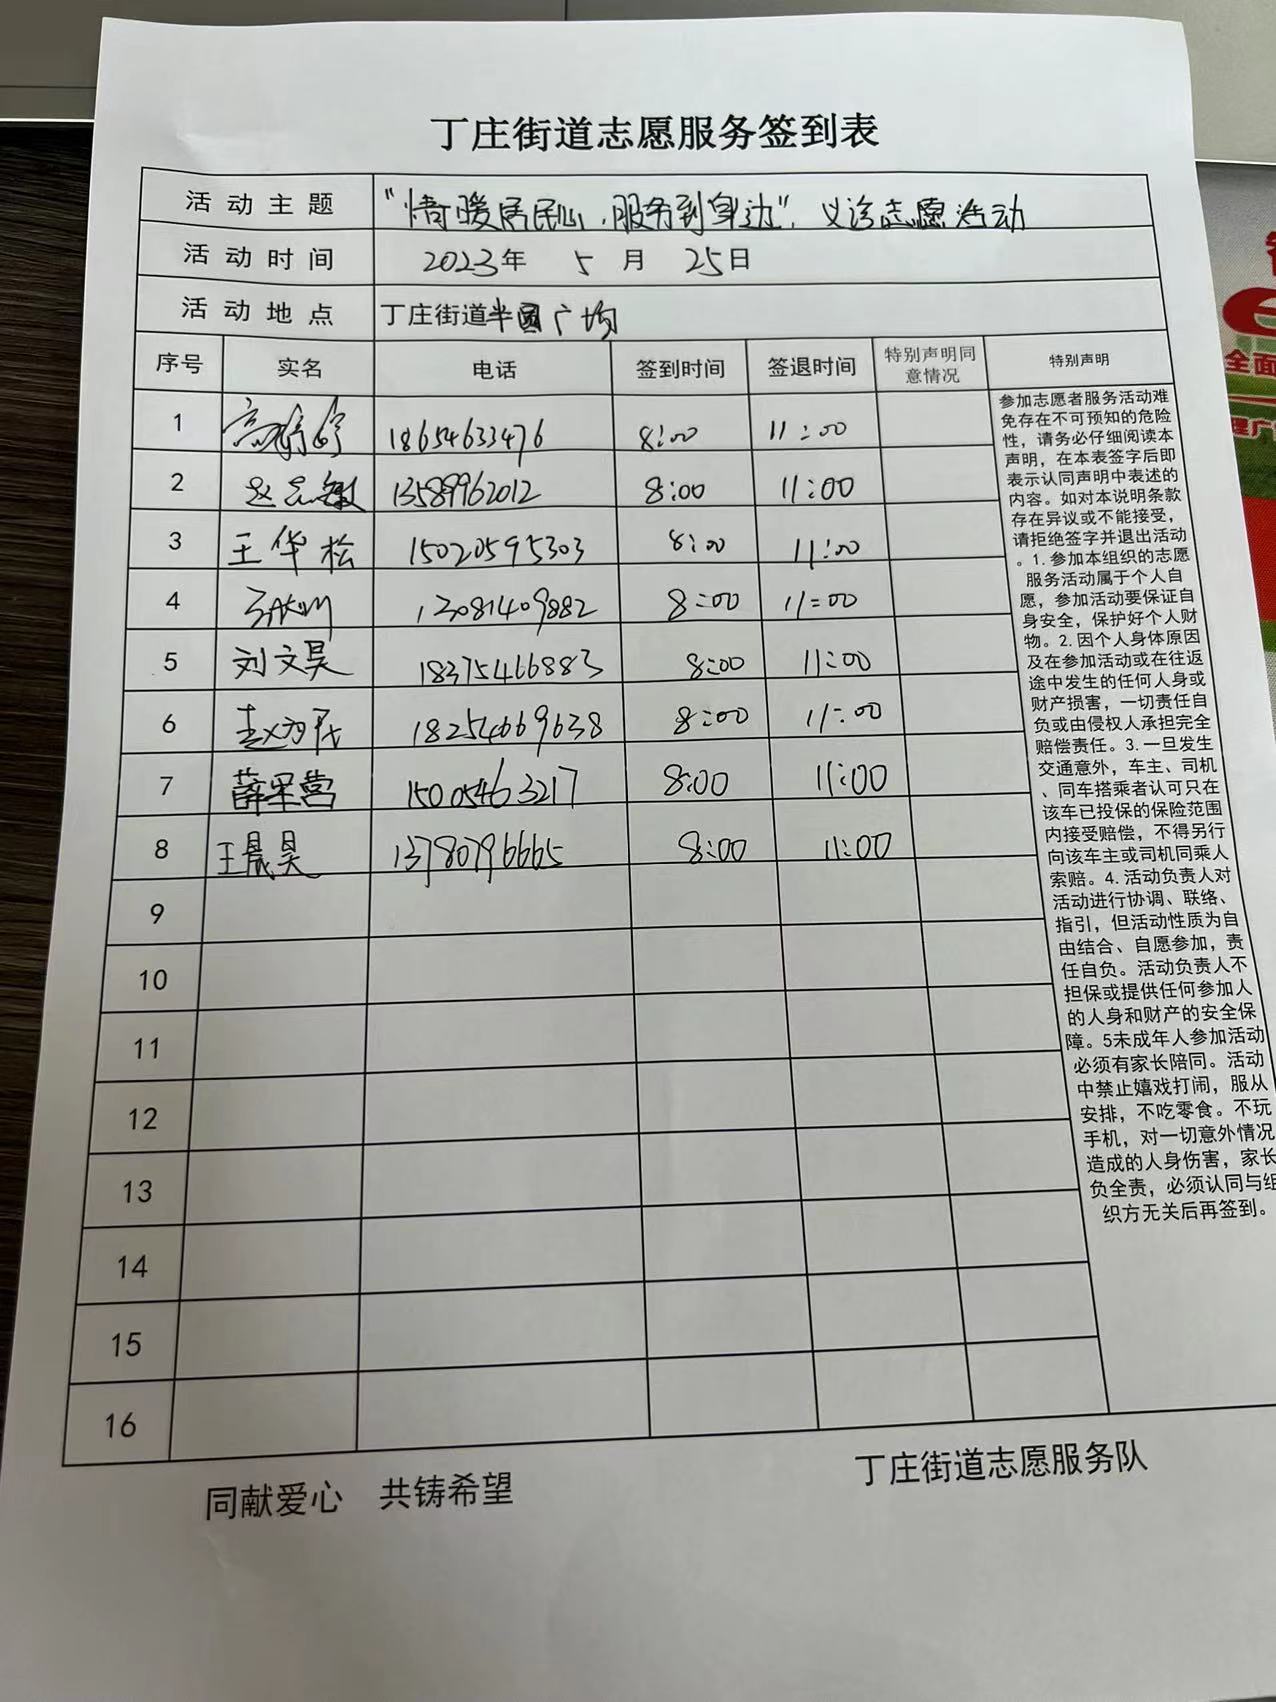 丁庄街道志愿服务签到表
活动主题 "情暖居民心，服务到身边"，义诊志愿活动
活动时间 2023年 5月 25日
活动地点 丁庄街道半圆广场
序号 实名 电话 签到时间 签退时间 特别声明同意情况 特别声明
1 18654633476 8:00 11:00
2 赵志敏 13589962012 8:00 11:00
3 王华松 15020595303 8:00 11:00
4 13081409882 8:00 11:00
5 刘文昊 18375466883 8:00 11:00
6 18254669638 8:00 11:00
7 薛果营 15005463217 8:00 11:00
8 王晨昊 13780796665 8:00 11:00
9
10
11
12
13
14
15
16
参加志愿者服务活动难
免存在不可预知的危险
性，请务必仔细阅读本
声明，在本表签字后即
表示认同声明中表述的
内容。如对本说明条款
存在异议或不能接受，
请拒绝签字并退出活动
。1.参加本组织的志愿
服务活动属于个人自
愿，参加活动要保证自
身安全，保护好个人财
物。2.因个人身体原因
及在参加活动或在往返
途中发生的任何人身或
财产损害，一切责任自
负或由侵权人承担完全
赔偿责任。3.一旦发生
交通意外，车主、司机
、同车搭乘者认可只在
该车已投保的保险范围
内接受赔偿，不得另行
向该车主或司机同乘人
索赔。4.活动负责人对
活动进行协调、联络、
指引，但活动性质为自
由结合、自愿参加，责
任自负。活动负责人不
担保或提供任何参加人
的人身和财产的安全保
障。5未成年人参加活动
必须有家长陪同。活动
中禁止嬉戏打闹，服从
安排，不吃零食。不玩
手机，对一切意外情况
造成的人身伤害，家长
负全责，必须认同与组
织方无关后再签到。
同献爱心 共铸希望
丁庄街道志愿服务队
全面
理广